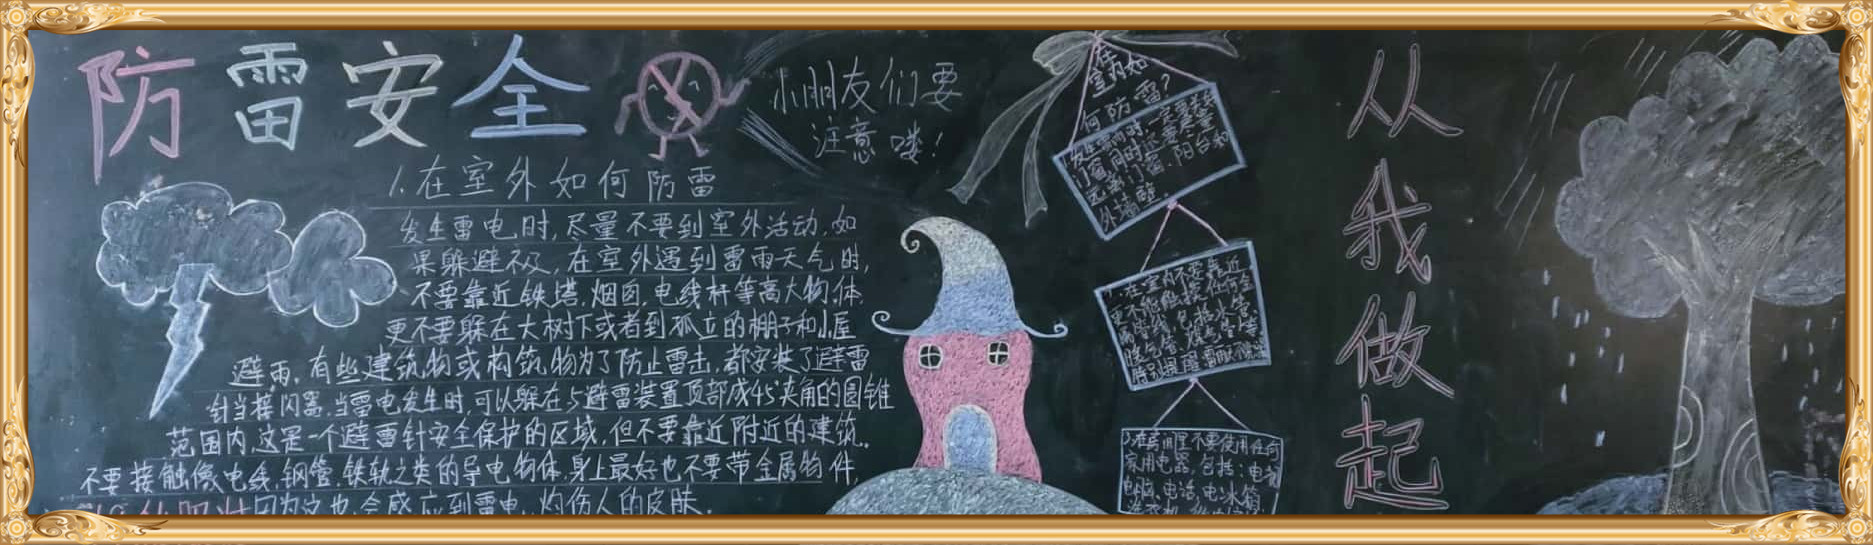 防雷安全
小朋友们要
注意喽！
1.在室外如何防雷
发生雷电时，尽量不要到室外活动，如
果躲避不及，在室外遇到雷雨天气时，
不要靠近铁塔，烟囱，电线杆等高大物体，
更不要躲在大树下或者到孤立的棚子和小屋
避雨，有些建筑物或构筑物为了防止雷击，都安装了避雷
针当接闪器，当雷电发生时，可以躲在与避雷装置顶部成45°夹角的圆锥
范围内，这是一个避雷针安全保护的区域，但不要靠近附近的建筑。
不要接触像电线、钢管、铁轨之类的导电物体，身上最好也不要带金属物件，
因为这也会感应到雷电，灼伤人的皮肤。
在
室内如
何防雷？
发生雷雨时，一定要关好
门窗，同时还要尽量
远离门窗、阳台和
外墙壁。
1.在室内不要靠近
更不能触摸任何金
属管线，包括水管、
暖气管、煤气管等，
特别提醒雷雨
2.在房间里不要使用任何
家用电器，包括：电视
电脑、电话、电冰箱
从
我
做
起